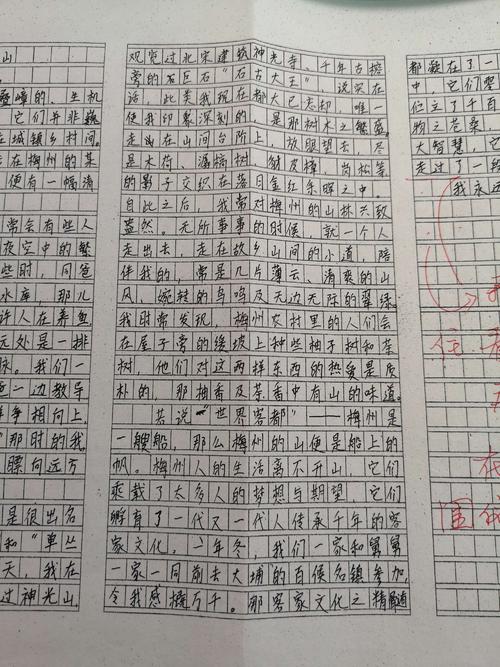 山
叠嶂的、生机
，它们并非巍
在城镇乡村间。
在梅州的某
便有一幅清
常会有些人
夜空中的繁
些时，同爸
水库，那儿
许人在养鱼，
远处是一排
脉。我们一
爸一边教导
身争相向上。
"那时的我
骤向远方
是很出名
和"单丛
天，我在
过神光山，
观览过北宋建筑神光寺、千年古榕
旁的石巨石"石古大王"，说实在
话，此类我现在都大已忘却，唯一
使我印象深刻的，是那树木之繁盛。
走进在山间台阶上，放眼望去，尽
是木荷、潺槁树、鱿皮樟，岗松等
的影子交织在落日金红余晖之中。
自此之后，我常对梅州的山林兴致
盎然。无所事事的时候，就一个人
走出去，走在故乡山间的小道，陪
伴我的，常是几片薄云、清爽的山
风、婉转的鸟鸣及无边无际的翠绿。
我时常发现，梅州农村里的人们会
在屋子旁的缓坡上种些柚子树和茶
树，他们对这两样东西的热爱是质
朴的，那柚香及茶香中有山的味道。
若说"世界客都"——梅州是
一艘船，那么梅州的山便是船上的
帆。梅州人的生活离不开山，它们
乘载了太多人的梦想与期望，它们
孵育了一代又一代人传承千年的客
家文化。二年冬，我们一家和舅舅
一家一同前去大埔的百侯名镇参加，
令我感概万千。那客家文化之精髓
都凝在了一
中，它们娶
伫立了千百
物之苍桑，
大智慧，它
走过了一段
我永远